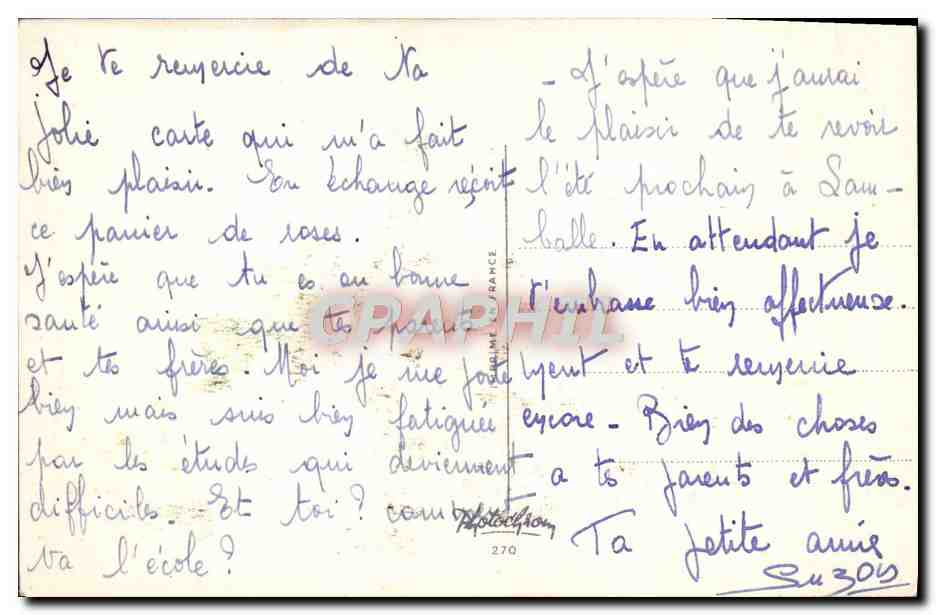 Je te remercie de ta
jolie carte qui m'a fait
bien plaisir. En échange reçoit
ce panier de roses.
J'espère que tu es en bonne
santé ainsi que tes parents
et tes frères. Moi je me porte
bien mais suis bien fatiguée
par les études qui deviennent
difficiles. Et toi? comment
va l'école?
- J'espère que j'aurai
le plaisir de te revoir
l'été prochain à Lam-
balle. En attendant je
t'embrasse bien affectueuse-
ment et te remercie
encore - Bien des choses
a tes parents et frères.
Ta petite amie
Suzon
IMPRIMÉ EN FRANCE
Photochrom
270
CPAPHIL